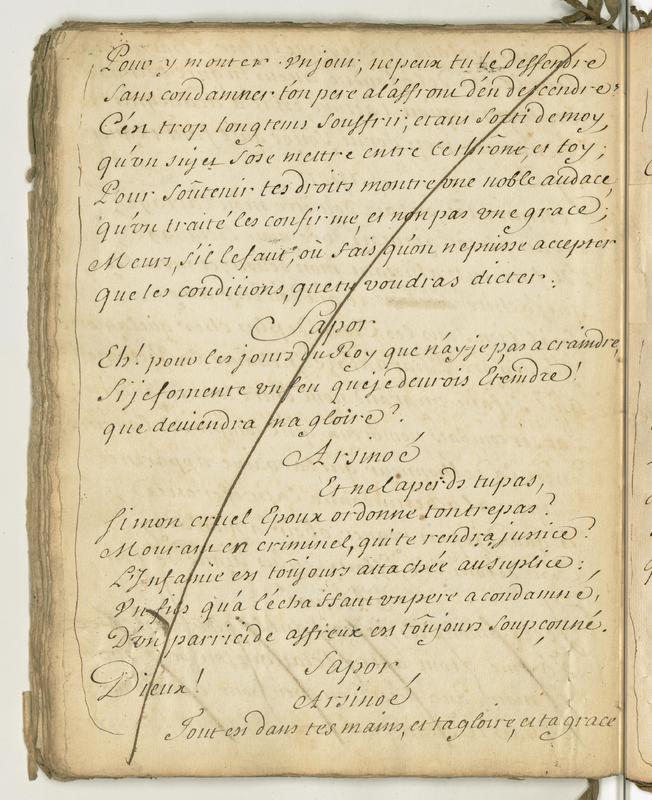 Pour y monter vn jour, ne peux tu le deffendre
Sans condamner ton pere a l'affront d'en descendre?
C'en trop longtems souffrir, et ans sorti de moy,
qu'vn sujet s'ôse mettre entre le thrône, et toy;
Pour soûtenir tes droits montre vne noble audace,
qu'vn traité les confirme, et non pas vne grace;
Meurs, s'il le faut, où fais qu'on ne puisse accepter
que les conditions, que tu voudras dicter.
Sapor
Eh! pour les jours du Roy que n'ay-je pas a craindre,
Si je fomente vn feu que je deurois Eteindre!
que deuiendra ma gloire?
Arsinoé
Et ne la perds tu pas,
Si mon cruel Epoux ordonne ton trepas?
Mourant en criminel, qui te rendra justice?
L'Infamie est toûjours attachée au suplice:
Vn fils qu'a l'échaffaut vn pere a condamné,
D'vn parricide affreux est toûjours soupçonné.
Sapor
Dieux!
Arsinoé
Tout est dans tes mains, et ta gloire, et ta grace